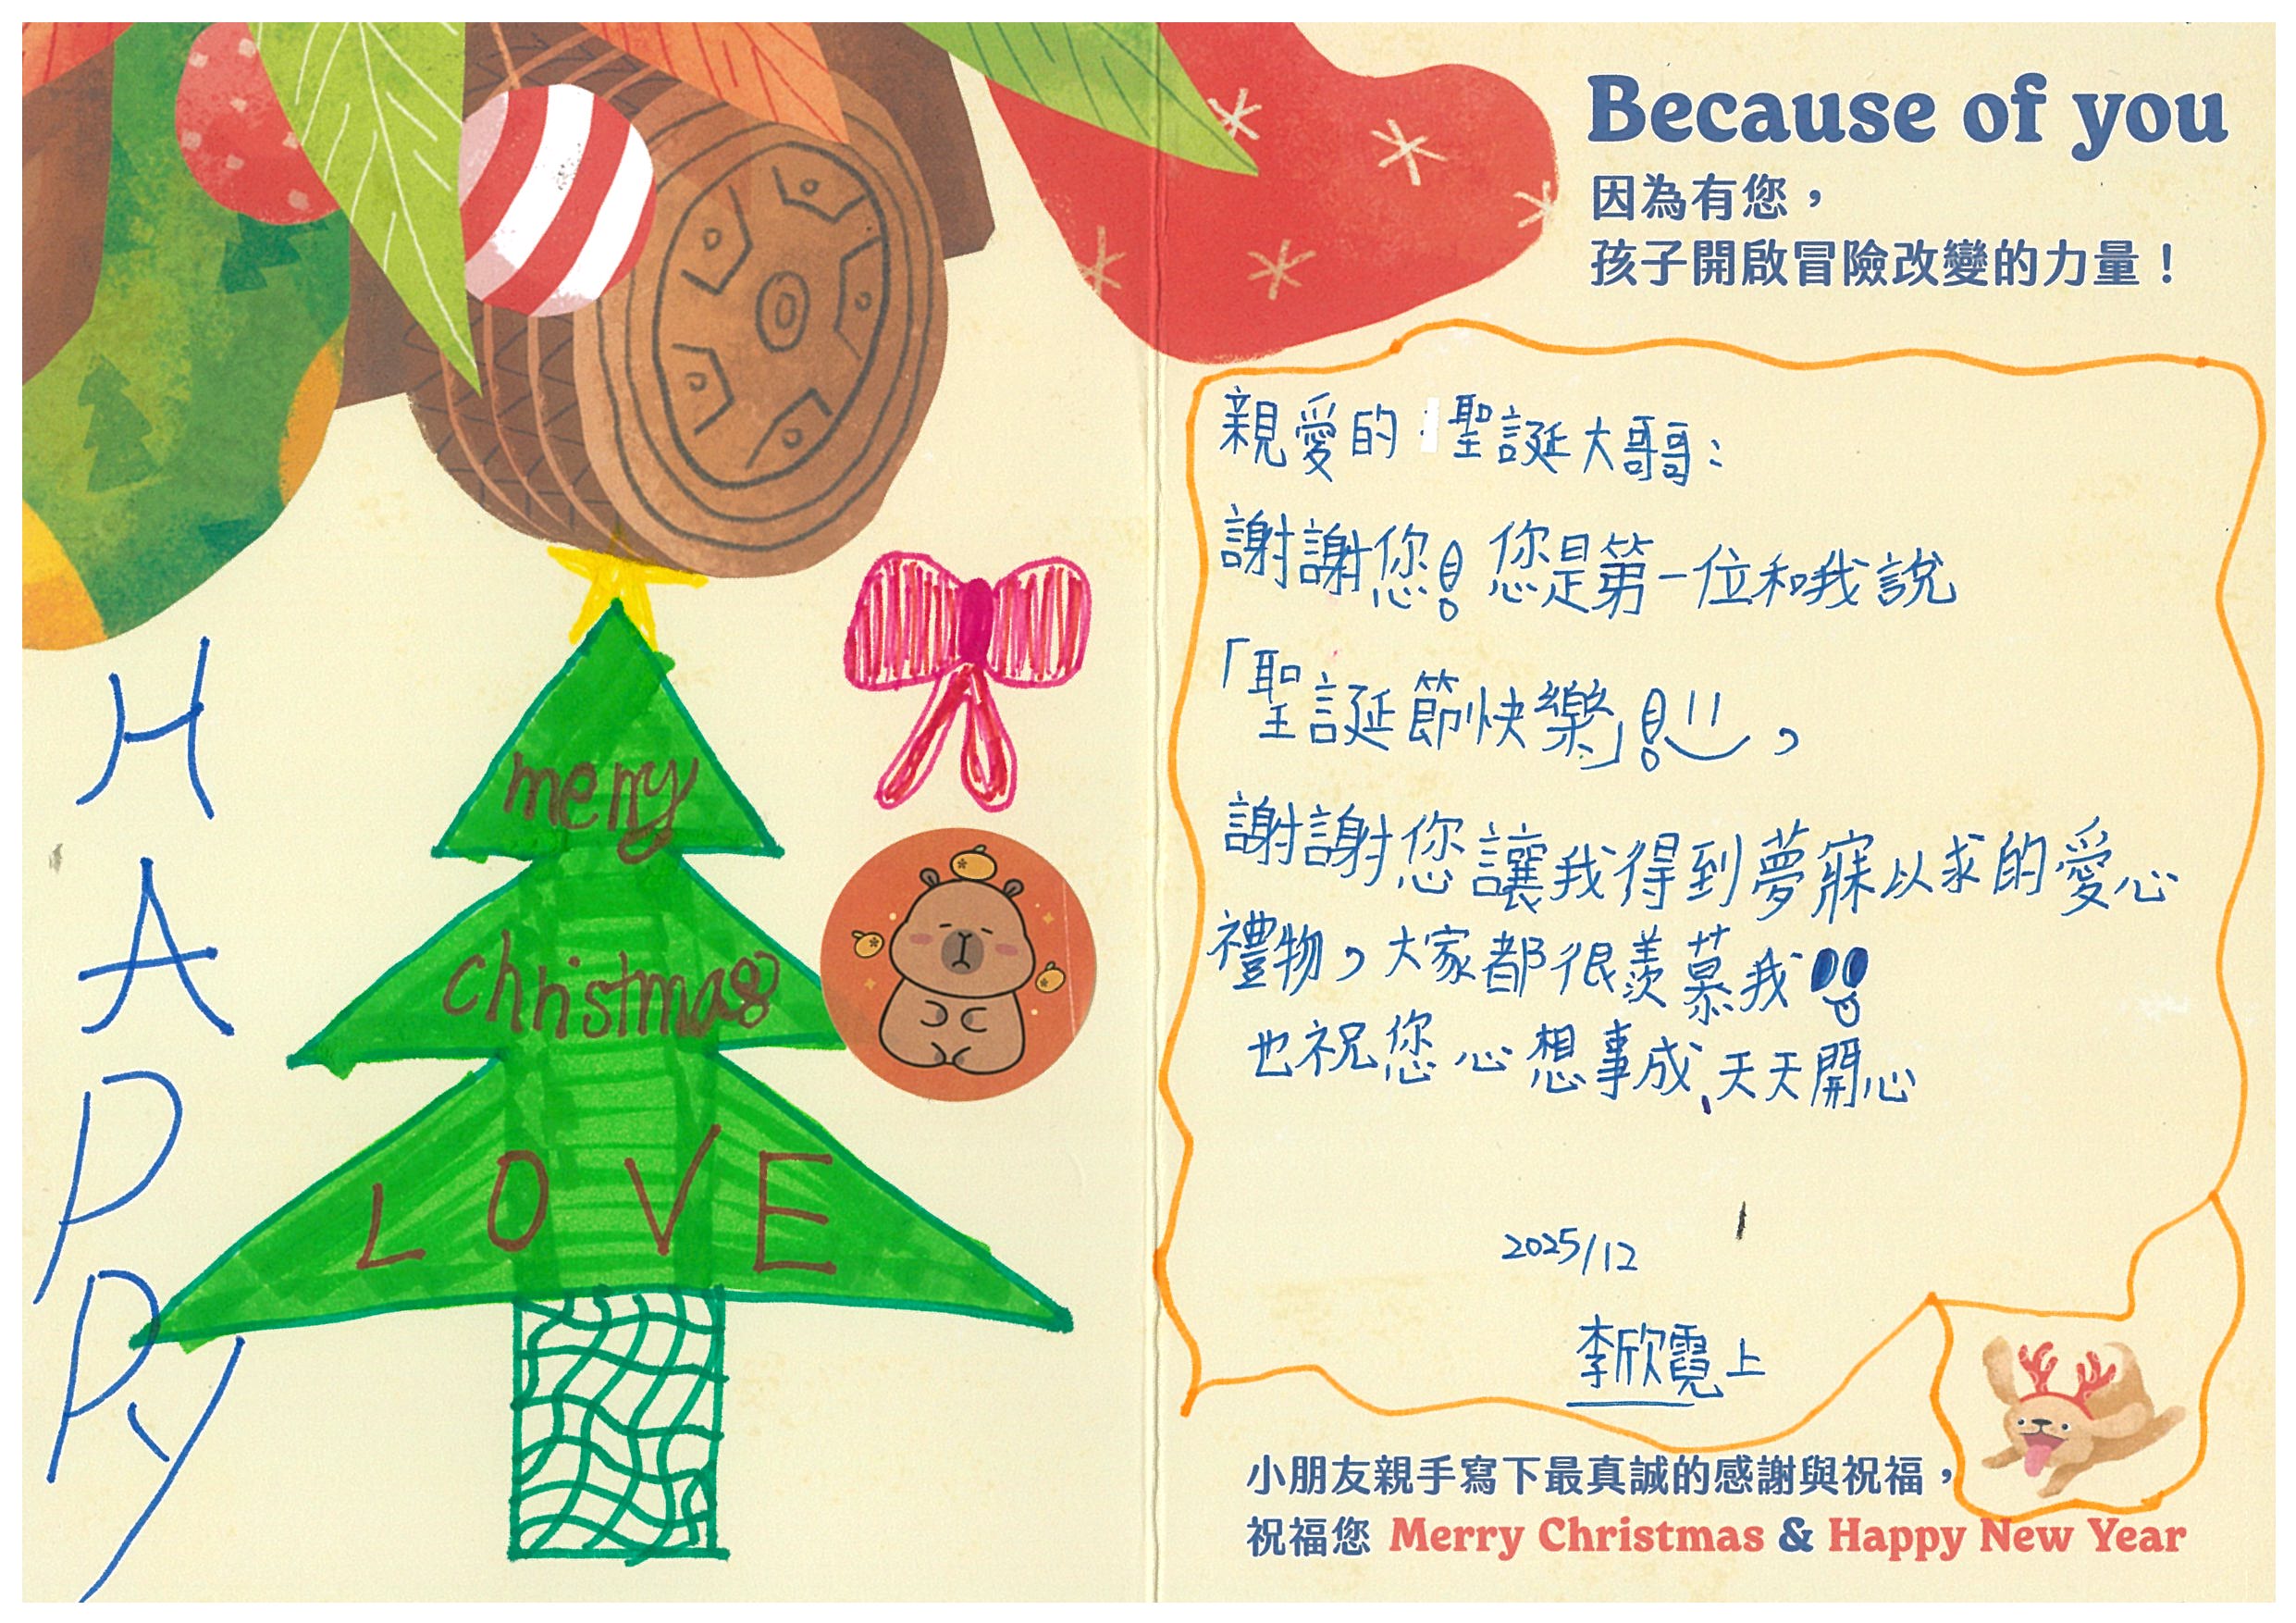 Because of you
因為有您，
孩子開啟冒險改變的力量！
親愛的聖誕大哥哥：
謝謝您！您是第一位和我說
「聖誕節快樂」！，
謝謝您讓我得到夢寐以求的愛心
禮物，大家都很羨慕我
也祝您心想事成、天天開心
2025/12
李欣霓上
小朋友親手寫下最真誠的感謝與祝福，
祝福您 Merry Christmas & Happy New Year
HAPPY
merry
christmas
LOVE